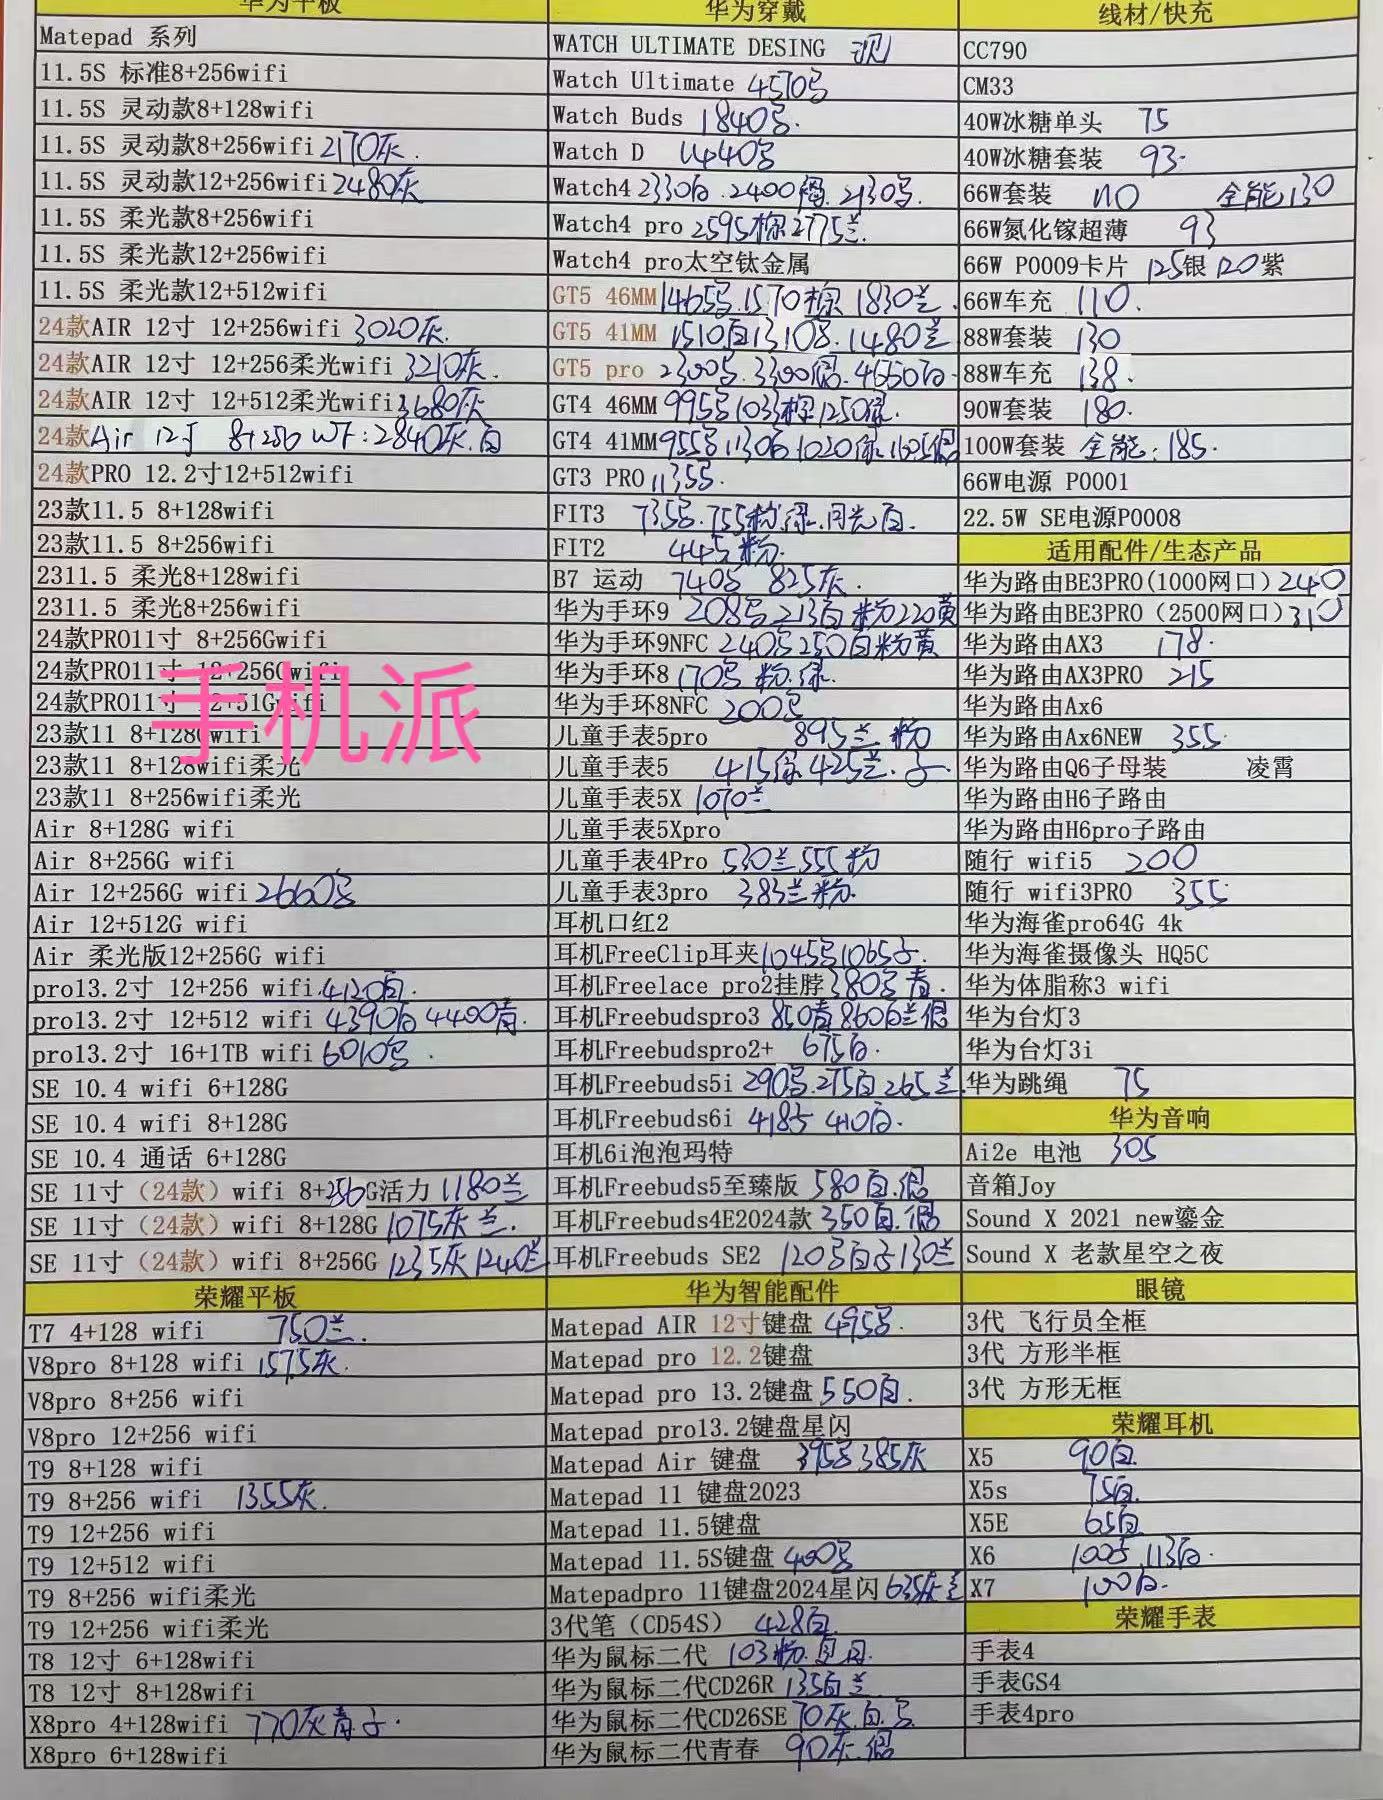 华为平板
Matepad 系列
11.5S 标准8+256wifi
11.5S 灵动款8+128wifi
11.5S 灵动款8+256wifi 2170灰.
11.5S 灵动款12+256wifi 2480灰
11.5S 柔光款8+256wifi
11.5S 柔光款12+256wifi
11.5S 柔光款12+512wifi
24款AIR 12寸 12+256wifi 3020灰.
24款AIR 12寸 12+256柔光wifi 3210灰.
24款AIR 12寸 12+512柔光wifi 3680灰
24款Air 12寸 8+256 WF:2840灰.白
24款PRO 12.2寸12+512wifi
23款11.5 8+128wifi
23款11.5 8+256wifi
2311.5 柔光8+128wifi
2311.5 柔光8+256wifi
24款PRO11寸 8+256Gwifi
24款PRO11寸 12+256Gwifi
24款PRO11寸 12+51Gwifi
手机派
23款11 8+128Gwifi
23款11 8+128wifi柔光
23款11 8+256wifi柔光
Air 8+128G wifi
Air 8+256G wifi
Air 12+256G wifi 2660号
Air 12+512G wifi
Air 柔光版12+256G wifi
pro13.2寸 12+256 wifi 4120白.
pro13.2寸 12+512 wifi 4390白 4400青.
pro13.2寸 16+1TB wifi 6010号.
SE 10.4 wifi 6+128G
SE 10.4 wifi 8+128G
SE 10.4 通话 6+128G
SE 11寸（24款）wifi 8+256G活力 1180兰
SE 11寸（24款）wifi 8+128G 1075灰兰.
SE 11寸（24款）wifi 8+256G 1235灰1240兰
荣耀平板
T7 4+128 wifi 750兰.
V8pro 8+128 wifi 1575灰.
V8pro 8+256 wifi
V8pro 12+256 wifi
T9 8+128 wifi
T9 8+256 wifi 1355灰.
T9 12+256 wifi
T9 12+512 wifi
T9 8+256 wifi柔光
T9 12+256 wifi柔光
T8 12寸 6+128wifi
T8 12寸 8+128wifi
X8pro 4+128wifi 770灰青子.
X8pro 6+128wifi
华为穿戴
WATCH ULTIMATE DESING 现
Watch Ultimate 4570号
Watch Buds 1840号.
Watch D 1440号
Watch4 2330白.2400 .2130号.
Watch4 pro 2595棕2775兰.
Watch4 pro太空钛金属
GT5 46MM 1465号.1570棕 1830兰.
GT5 41MM 1510白1310号.1480兰
GT5 pro 2300号.3300 .4650白.
GT4 46MM 995号1035棕1250绿.
GT4 41MM 955号1130白1020绿1605
GT3 PRO 1135号.
FIT3 735号.755粉.绿.月光白.
FIT2 445粉.
B7 运动 740号 825灰.
华为手环9 208号213白粉220黄
华为手环9NFC 240号250白粉黄
华为手环8 170号.粉.绿.
华为手环8NFC 200号
儿童手表5pro 895兰.粉
儿童手表5 415绿425兰.子.
儿童手表5X 1070兰
儿童手表5Xpro
儿童手表4Pro 530兰555粉
儿童手表3pro 383兰粉.
耳机口红2
耳机FreeClip耳夹1045号1065子.
耳机Freelace pro2挂脖380号青.
耳机Freebudspro3 850青860白兰
耳机Freebudspro2+ 675白.
耳机Freebuds5i 290号.275白265兰.
耳机Freebuds6i 418号 410白.
耳机6i泡泡玛特
耳机Freebuds5至臻版 580白.
耳机Freebuds4E2024款 350白.
耳机Freebuds SE2 120号白子130兰
华为智能配件
Matepad AIR 12寸键盘 495号.
Matepad pro 12.2键盘
Matepad pro 13.2键盘 550白.
Matepad pro13.2键盘星闪
Matepad Air 键盘 395号385灰
Matepad 11 键盘2023
Matepad 11.5键盘
Matepad 11.5S键盘 400号
Matepadpro 11键盘2024星闪 635灰兰
3代笔（CD54S） 428白.
华为鼠标二代 103粉.
华为鼠标二代CD26R 135白兰
华为鼠标二代CD26SE 70灰.白.号
华为鼠标二代青春 90灰.
线材/快充
CC790
CM33
40W冰糖单头 75
40W冰糖套装 93.
66W套装 110 全能130
66W氮化镓超薄 93
66W P0009卡片 125银120紫
66W车充 110.
88W套装 130
88W车充 138.
90W套装 180.
100W套装 全能:185.
66W电源 P0001
22.5W SE电源P0008
适用配件/生态产品
华为路由BE3PRO(1000网口)240
华为路由BE3PRO（2500网口）310
华为路由AX3 178.
华为路由AX3PRO 215
华为路由Ax6
华为路由Ax6NEW 355.
华为路由Q6子母装 凌霄
华为路由H6子路由
华为路由H6pro子路由
随行 wifi5 200
随行 wifi3PRO 355.
华为海雀pro64G 4k
华为海雀摄像头 HQ5C
华为体脂称3 wifi
华为台灯3
华为台灯3i
华为跳绳 75
华为音响
Ai2e 电池 305
音箱Joy
Sound X 2021 new鎏金
Sound X 老款星空之夜
眼镜
3代 飞行员全框
3代 方形半框
3代 方形无框
荣耀耳机
X5 90白.
X5s 75白.
X5E 65白
X6 100号.113白.
X7 100白.
荣耀手表
手表4
手表GS4
手表4pro